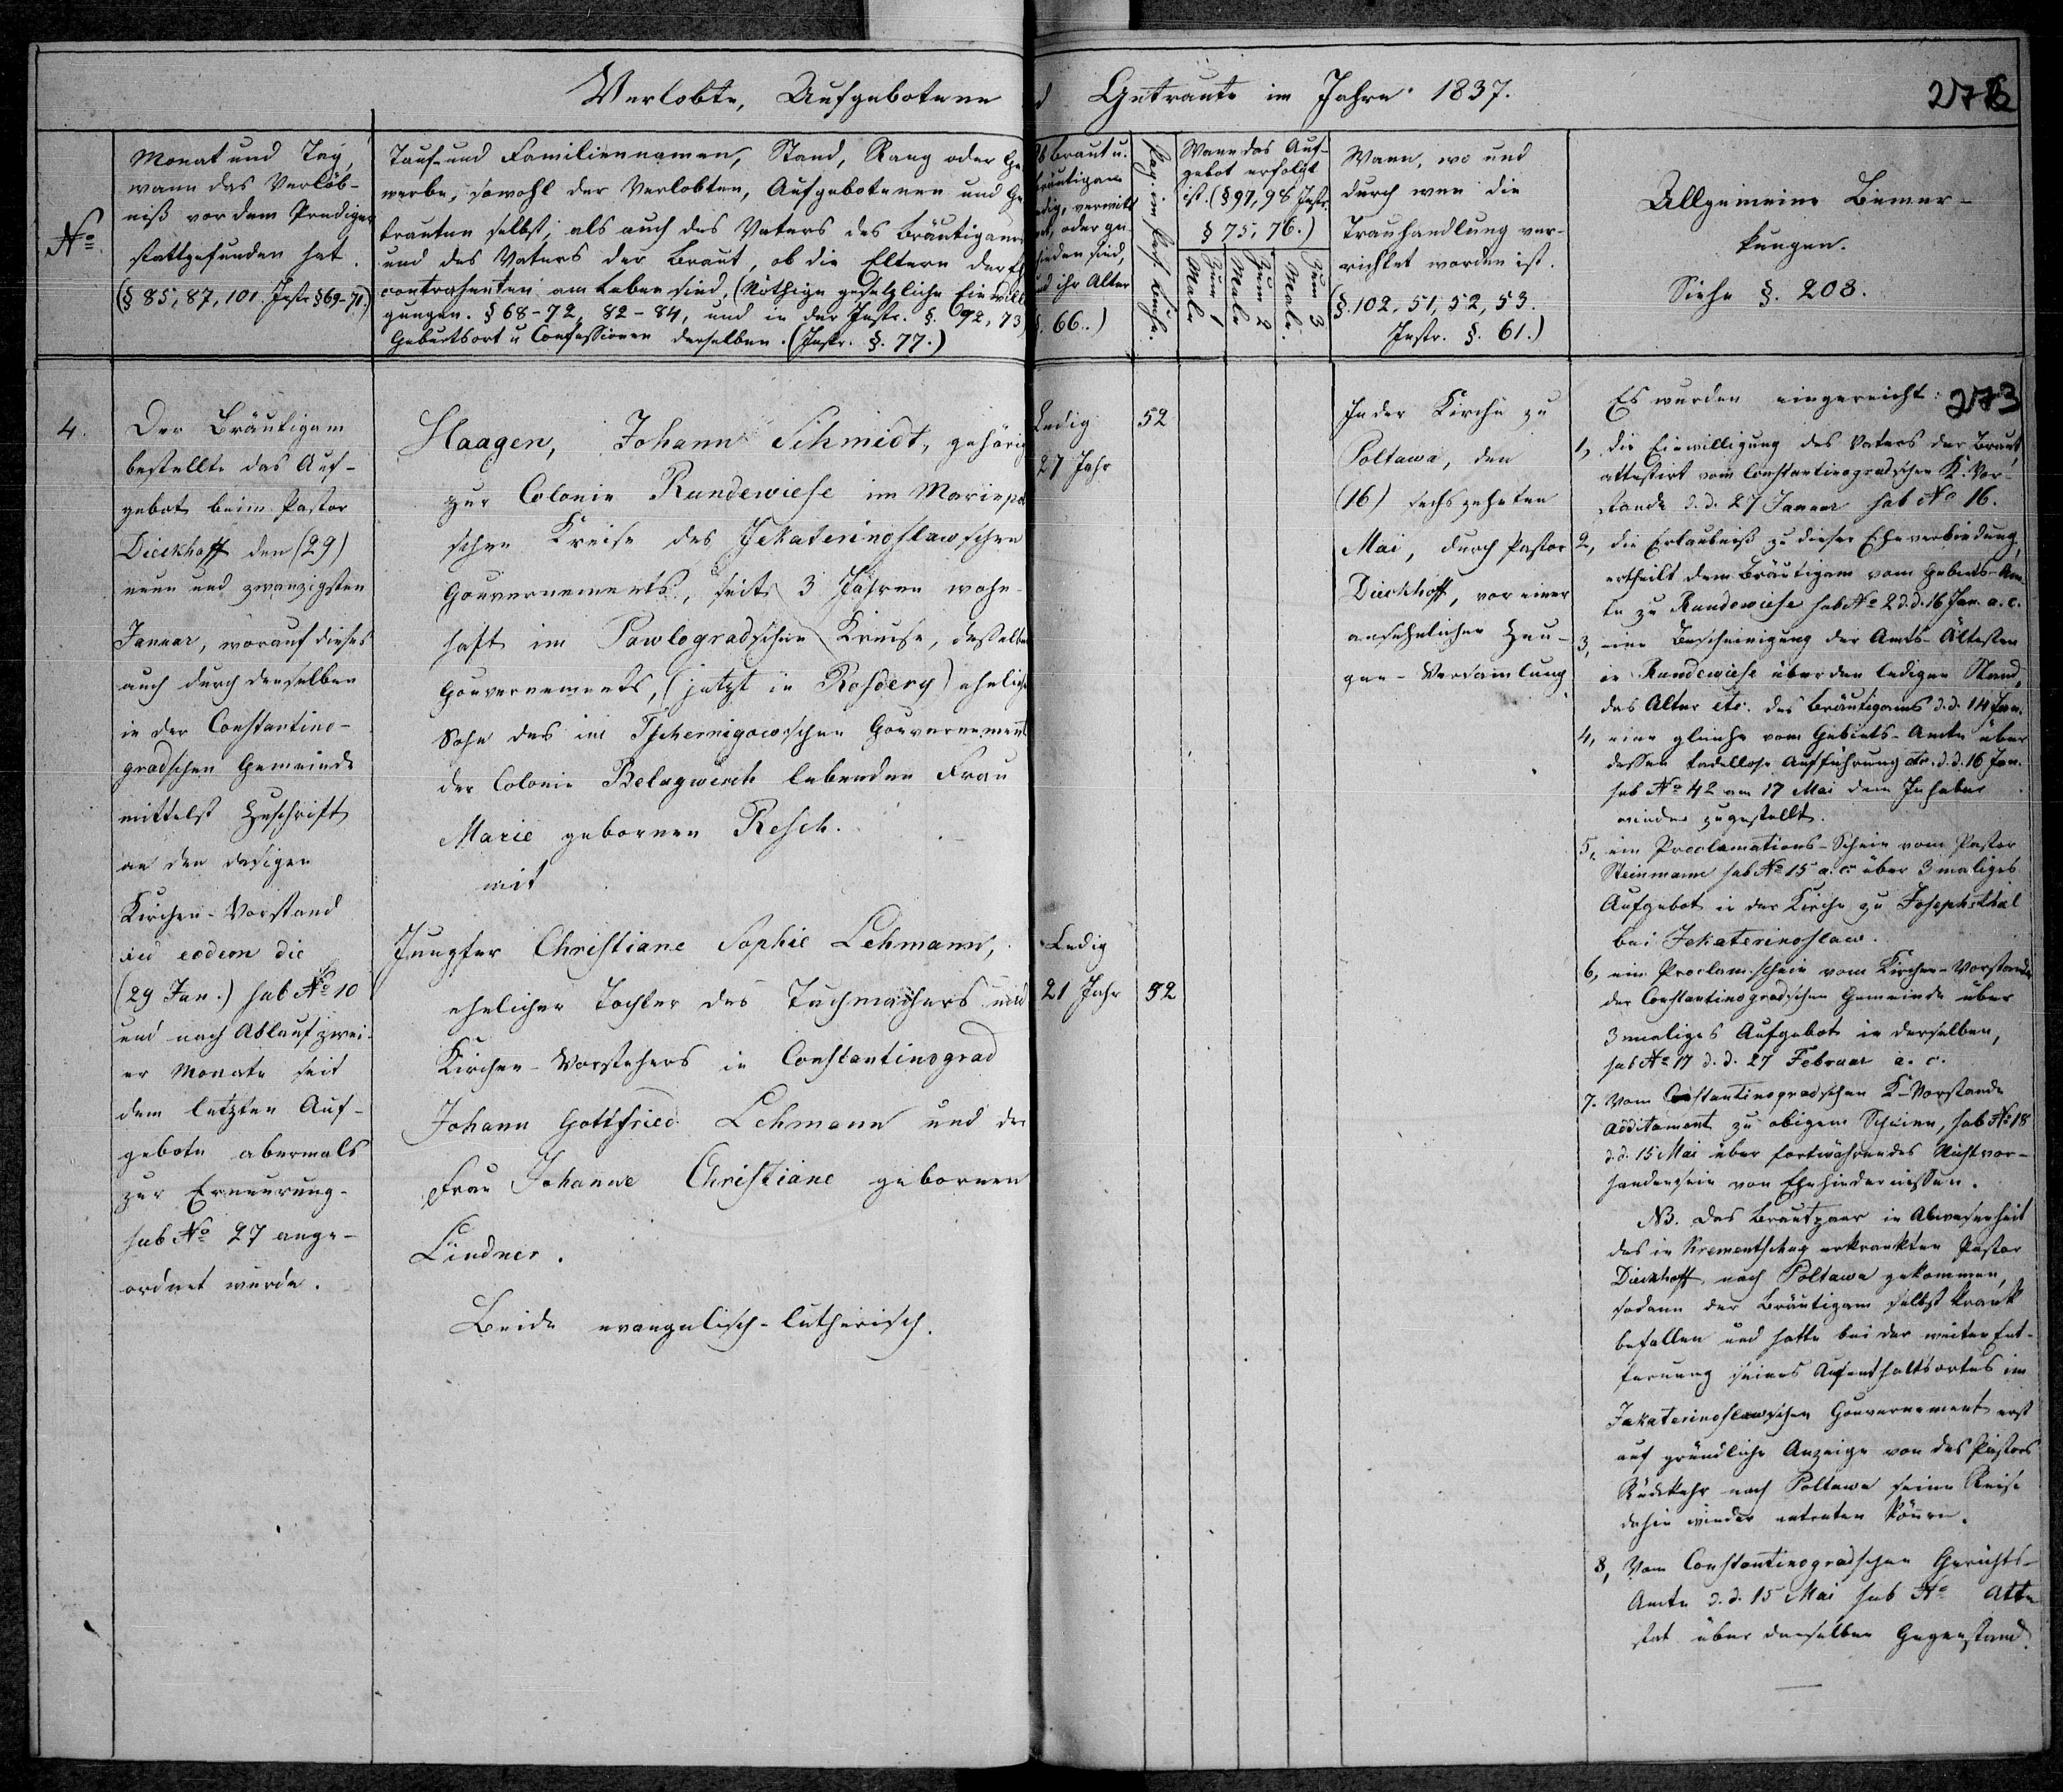 Verlobte, Aufgebotene
d Getraute im Jahre 1837.
276
No
Monat und Tag,
wann das Verlöb-
niß vor dem Prediger
stattgefunden hat.
(§ 85, 87, 101. Instr. § 69-71.)
Tauf- und Familiennamen, Stand, Rang oder Ge-
werbe, sowohl der Verlobten, Aufgebotenen und Ge
trauten selbst, als auch des Vaters des Bräutigams
und des Vaters der Braut, ob die Eltern der
contrahenten am Leben sind, (Nöthige gesetzliche Einwill
gungen. § 68-72, 82-84, und in der Instr. §. 92, 73)
Geburtsort u Confessionen derselben. (Instr. §. 77.)
Ob Braut u.
räutigam
edig, verwitt
et, oder ge
ieden sind,
nd ihr Alter
§. 66.)
Pag. im Pers. Buche.
Wann das Auf-
gebot erfolgt
ist. (§ 97, 98 Instr.
§ 75, 76.)
Zum 1 Male
Zum 2 Male
Zum 3 Male.
Wann, wo und
durch wen die
Trauhandlung ver-
richtet worden ist.
(§. 102, 51, 52, 53.
Instr. §. 61.)
Allgemeine Bemer-
kungen.
Siehe §. 208.
4.
Der Bräutigam
bestellte das Auf-
gebot beim Pastor
Dieckhoff den (29)
neun und zwanzigsten
Januar, worauf dieses
auch durch denselben
in der Constantino-
gradschen Gemeinde
mittelst Zuschrift
an den dasigen
Kirchen-Vorstand
eodem die
(29 Jan.) sub No 10
und nach Ablauf zwei-
er Monate seit
dem letzten Auf-
gebote abermals
zur Erneurung
sub No 27 ange-
ordnet wurde.
Haagen, Johann Schmidt, gehörig
zur Colonie Rundewiese im Mariupol
schen Kreise des Jekaterinoslawschen
Gouvernements, seit 3 Jahren wohn-
haft im Pawlogradschen Kreise, desselben
Gouvernements, (jetzt in Rosdery) eheliche
Sohn des im Tschernigowschen Gouvernement
der Colonie Belagwesch lebenden Frau
Marie gebornen Resch.
mit
Jungfer Christiane Sophie Lehmann,
ehelicher Tochter des Tuchmachers und
Kirchen-Vorstehers in Constantinograd
Johann Gottfried Lehmann und der
Frau Johanne Christiane gebornen
Lindner.
Beide evangelisch-lutherisch.
Ledig
27 Jahr
52
Ledig
21 Jahr
52
In der Kirche zu
Poltawa, den
(16) sechszehnten
Mai, durch Pastor
Dieckhoff, vor einer
ansehnlichen Zeu-
gen-Versamlung
Es wurden eingereicht:
273
1, die Einwilligung des Vaters der Braut,
attestirt vom Constantinogradschen K. Vor-
stande d. d. 27 Januar sub No 16.
2, die Erlaubniß zu dieser Eheverbindung,
ertheilt dem Bräutigam vom Gebiets-Am-
te zu Rundewiese sub No 2 d. d. 16 Jan. a. c.
3, eine Bescheinigung der Amts-Ältesten
in Rundewiese über den ledigen Stand,
das Alter etc. des Bräutigams d. d. 14 Jan.
4, eine gleiche vom Gebiets-Amte über
dessen tadellose Aufführung etc. d. d. 16 Jan.
sub No 42 am 17 Mai dem Inhaber
wieder zugestellt.
5, ein Proclamations-Schein vom Pastor
Steinmann sub No 15 a. c. über 3maliges
Aufgebot in der Kirche zu Josephsthal
bei Jekaterinoslaw.
6, ein Proclam. schein vom Kirchen-Vorstande
der Constantinogradschen Gemeinde über
3maliges Aufgebot in derselben,
sub No 17 d. d. 27 Februar a. c.
7. Vom Constantinogradschen K-Vorstande
Additament zu obigem Scheine, sub No 18
d. d. 15 Mai über fortwährendes Nichtvor-
handensein von Ehehindernissen.
NB. Das Brautpaar in Abwesenheit
des in Krementschug erkrankten Pastor
Dieckhoff nach Poltawa gekommen,
sodann der Bräutigam selbst krank
befallen und hatte bei der weiten Ent-
fernung seines Aufenthaltsortes im
Jekaterinoslawschen Gouvernement erst
auf gründliche Anzeige von des Pastors
Rückkehr nach Poltawa seine Reise
dahin wieder antreten können.
8, Vom Constantinogradschen Gerichts-
Amte d. d. 15 Mai sub No Atte
stat über denselben Gegenstand.